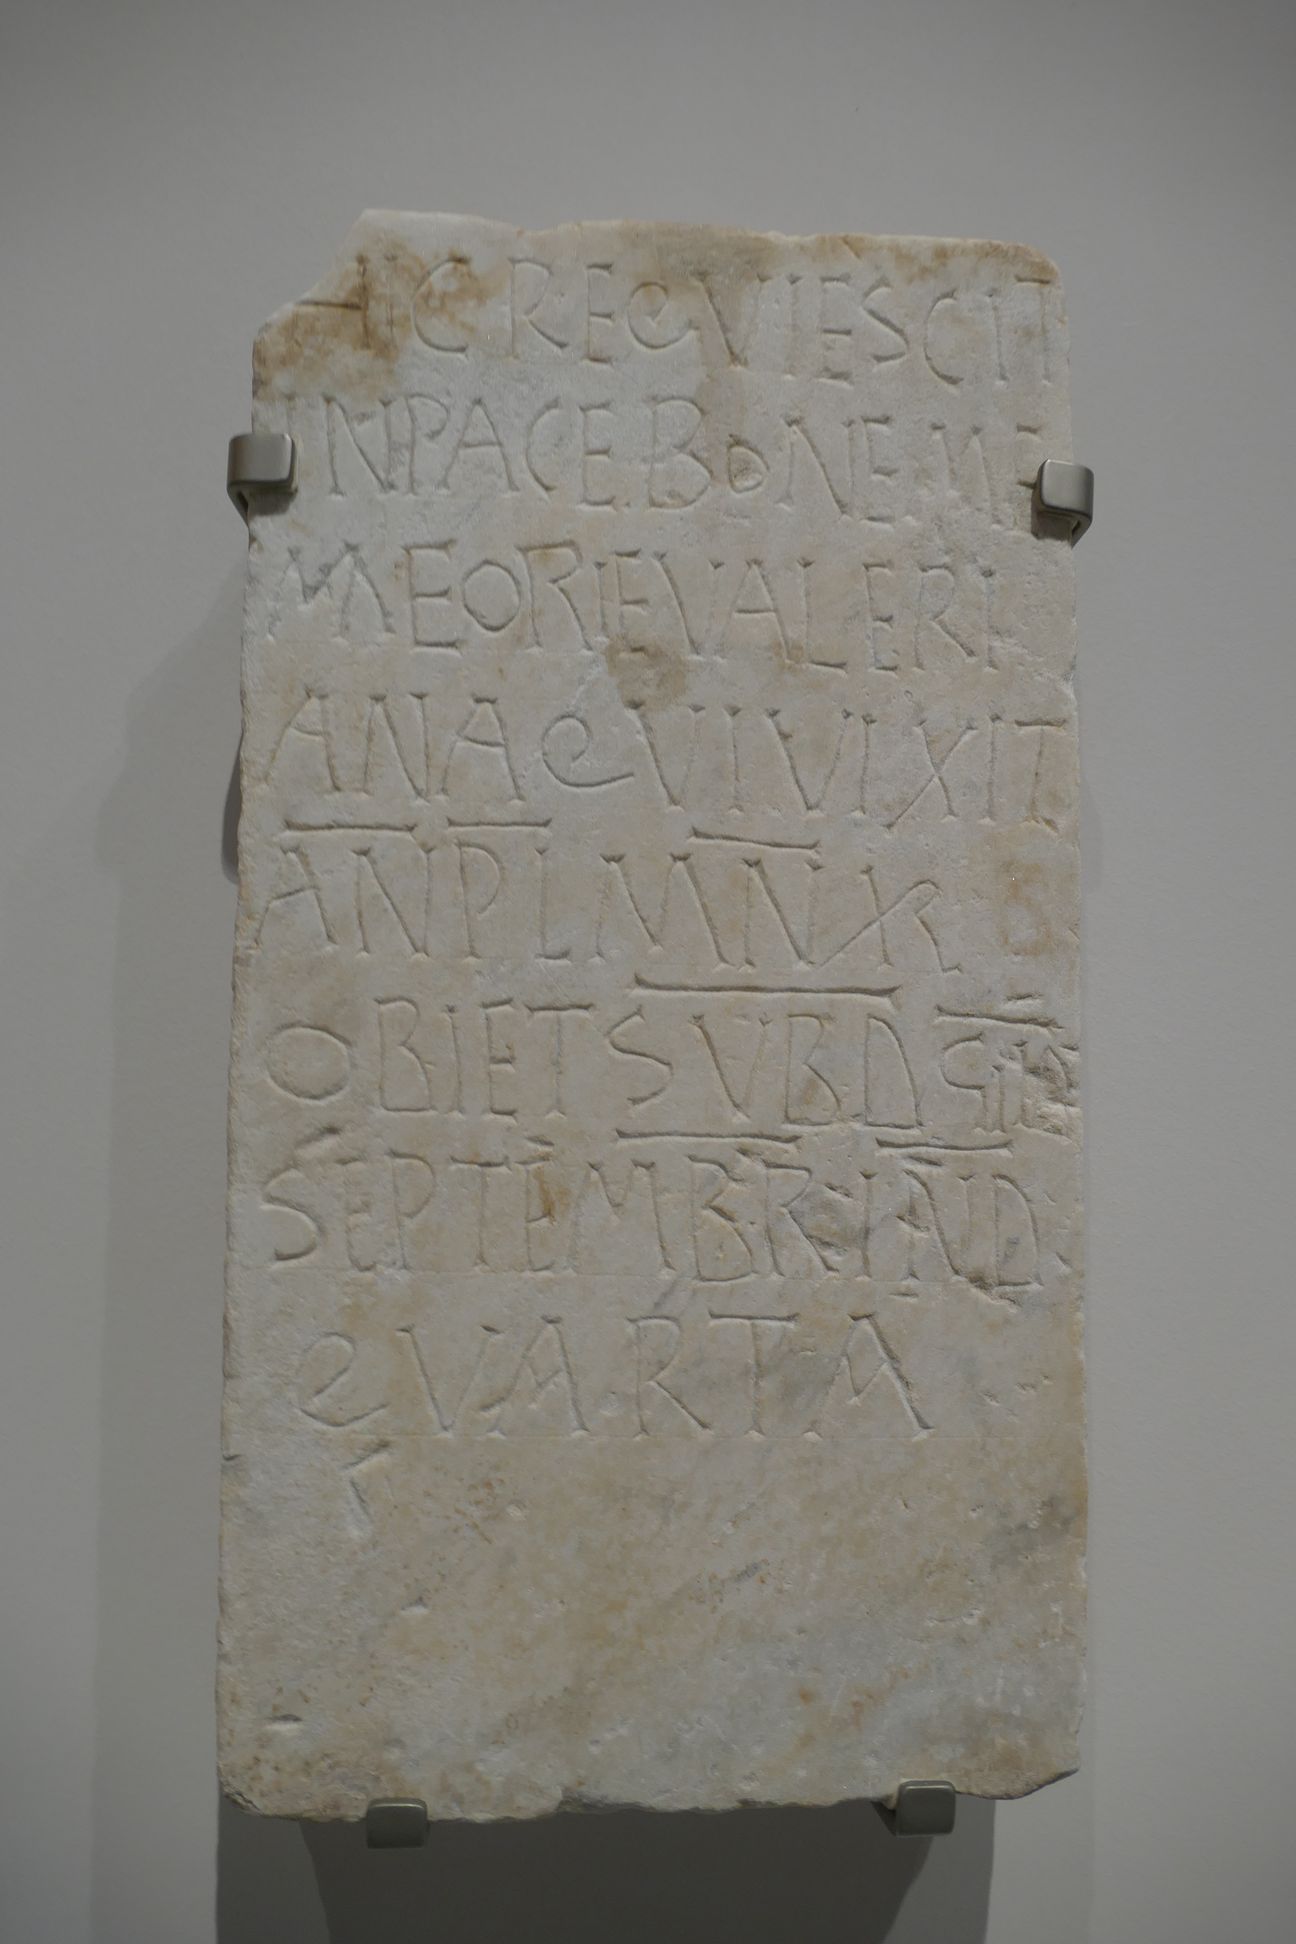 HIC REQVIESCIT
INPACE BONE ME
MEORIE VALERI
ANA QVI VIXIT
ANPLMNX
OBIET SVB D
SEPTEMBR IND
QVARTA